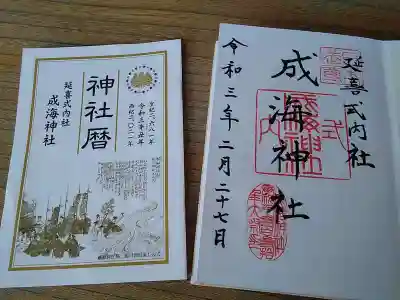 神社暦
皇紀二六八一年
令和三辛丑年
西紀二〇二一年
延喜式内社
成海神社
延喜式内社
成海神社
令和三年二月二十七日